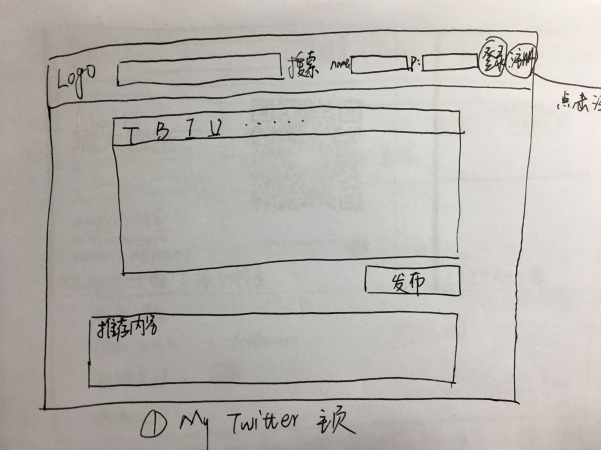 Logo 搜索 name P: 登录 注册
点击注
T B I U ·····
发布
推荐内容
① My Twitter 主页